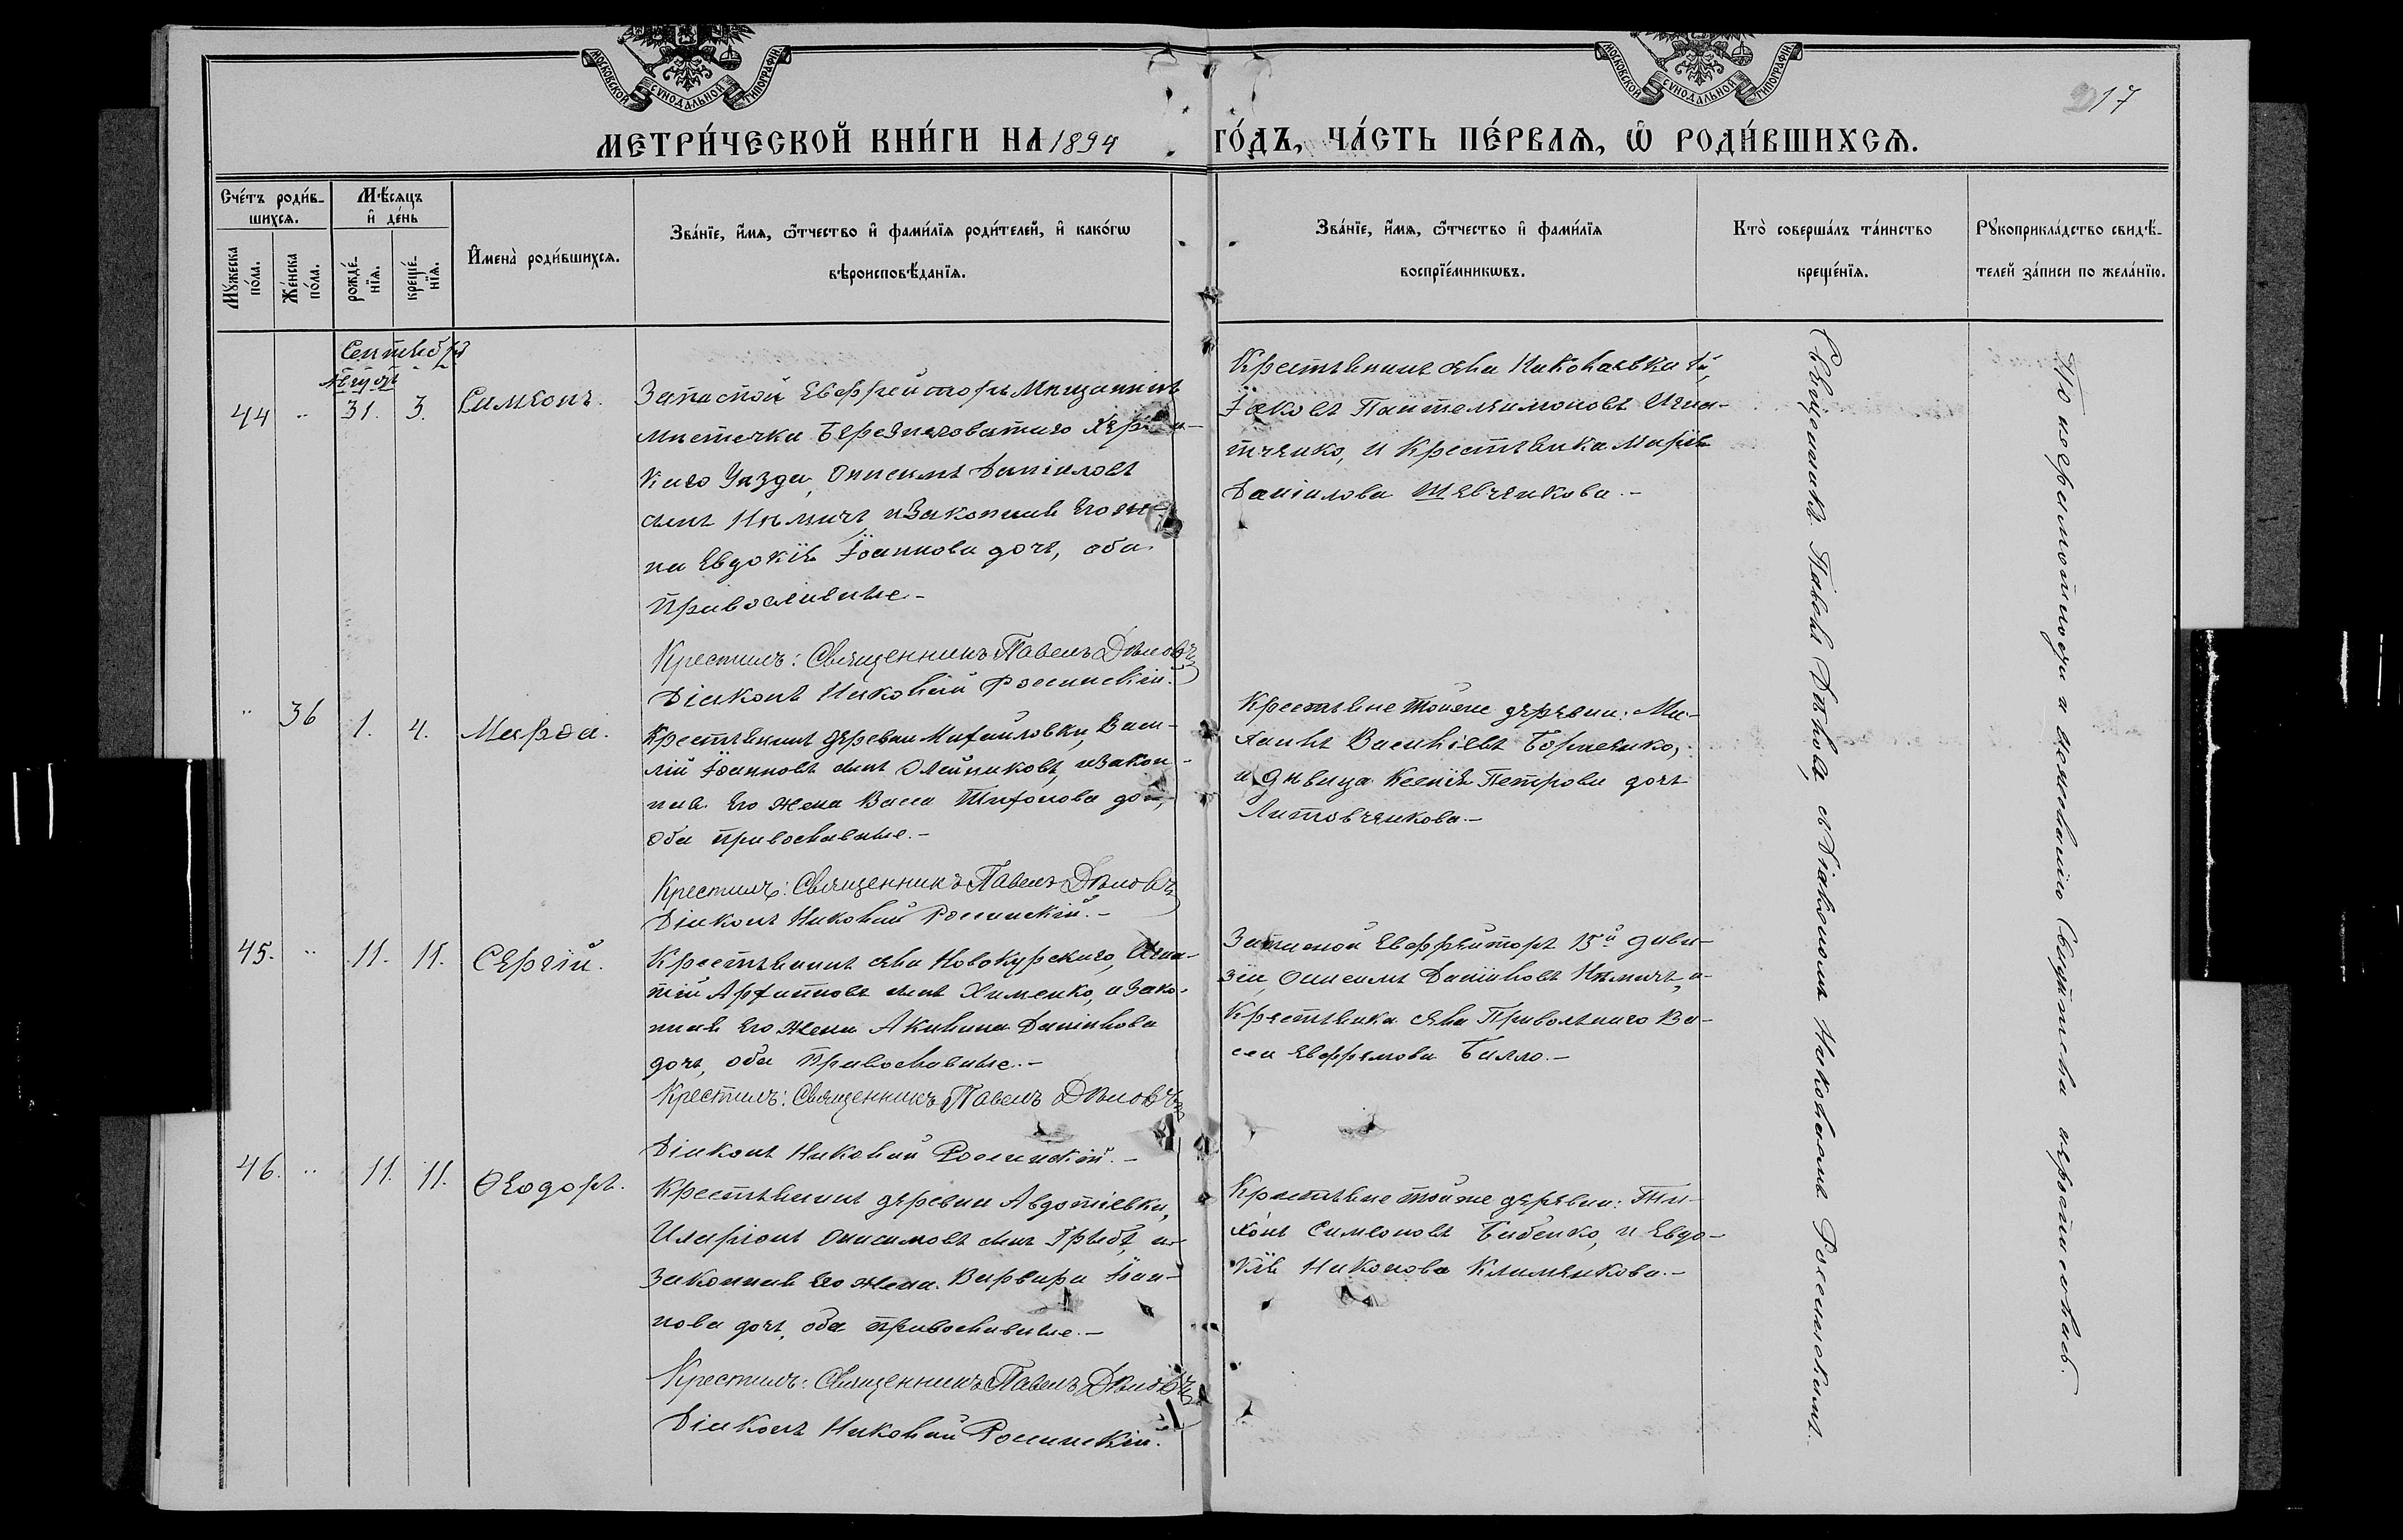 МОСКОВСКОЙ СѴНОДАЛЬНОЙ ТИПОГРАФІИ
МОСКОВСКОЙ СѴНОДАЛЬНОЙ ТИПОГРАФІИ
217
МЕТРИ́ЧЕСКОЙ КНИ́ГИ НА 1894 ГО́ДЪ, ЧА́СТЬ ПЕ́РВАѦ, Ѡ҆ РОДИ́ВШИХСѦ.
Сче́тъ роди́в-
шихсѧ.
Мꙋ́жеска по́ла.
Же́нска по́ла.
Мѣ́сѧцъ
и҆ де́нь
рожде́-
нїѧ.
креще́-
нїѧ.
И҆мена̀ роди́вшихсѧ.
Зва́нїе, и҆́мѧ, ѻ҆́тчество и҆ фами́лїѧ роди́телей, и҆ како́гѡ
вѣроисповѣ́данїѧ.
Зва́нїе, и҆́мѧ, ѻ҆́тчество и҆ фами́лїѧ
воспрїе́мникѡвъ.
Кто̀ соверша́лъ та́инство
креще́нїѧ.
Рꙋкоприкла́дство свидѣ́-
телей за́писи по жела́нїю.
Сентября
Августъ
44 " 31. 3. Симеонъ.
Запасной Евфрейторъ Мещанинъ
мѣстечка Березнеговатаго Херсон-
каго Уѣзда, Онисимъ Даніиловъ
сынъ Нѣмичъ и законная его же-
на Евдокія Іоаннова дочь, оба
православные.-
Крестилъ: Священникъ Павелъ Дѣловъ
Діаконъ Николай Россинскій.
Крестьянинъ села Николаевки 1й,
Іаковъ Пантелеимоновъ Игна-
тченко, и Крестьянка Марія
Даніилова Шевченкова.-
" 36 1. 4. Марѳа.
Крестьянинъ деревни Михайловки, Васи-
лій Іоанновъ сынъ Олейниковъ, и закон-
ная его жена Васса Тихонова дочь,
оба православные.-
Крестилъ: Священникъ Павелъ Дѣловъ
Діаконъ Николай Россинскій.-
Крестьяне тойже деревни: Ми-
хаилъ Васильевъ Борисенко,
и дѣвица Ксенія Петрова дочь
Литовченкова.-
45. " 11. 11. Сергій.
Крестьянинъ села Новокурскаго, Игна-
тій Архиповъ сынъ Хименко, и зако-
нная его жена Акилина Даніилова
дочь, оба православные.-
Крестилъ: Священникъ Павелъ Дѣловъ
Діаконъ Николай Россинскій.-
Запасной Евфрейторъ 15й диви-
зіи, Онисимъ Даніиловъ Нѣмичъ, и-
Крестьянка села Привольнаго Ва-
сса Евфремова Билло.-
46. " 11. 11. Ѳеодоръ.
Крестьянинъ деревни Авдотіевки,
Иларіонъ Онисимовъ сынъ Грѣбъ, и-
законная его жена Варвара Іоан-
нова дочь, оба православные.-
Крестилъ: Священникъ Павелъ Дѣловъ
Діаконъ Николай Россинскій.
Крестьяне тойже деревни: Ти-
хонъ Симеоновъ Бабенко, и Евдо-
кія Никонова Клименкова.-
Священникъ Павелъ Дѣловъ, съ Діакономъ Николаемъ Россинскимъ.
По неграмотности и нежеланію Свидѣтели неросписались.